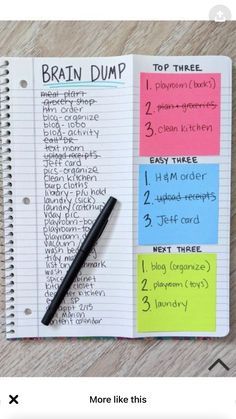 BRAIN DUMP
meal plan
grocery shop
hm order
blog - organize
blog - lobo
blog - activity
call DR
text mom
upload receipts
Jeff card
pics - organize
clean kitchen
burp cloths
library - p/u hold
laundry (sick)
laundry (catchup)
vday pic
playroom - boo
playroom - to
playroom
vacuum
wash be
tidy
list on
wash
spice cabinet
closet
kitchen
SP
appt 2/15
content calendar
TOP THREE
1. playroom (books)
2. plan + groceries
3. clean kitchen
EASY THREE
1. H&M order
2. upload receipts
3. Jeff card
NEXT THREE
1. blog (organize)
2. playroom (toys)
3. laundry
More like this